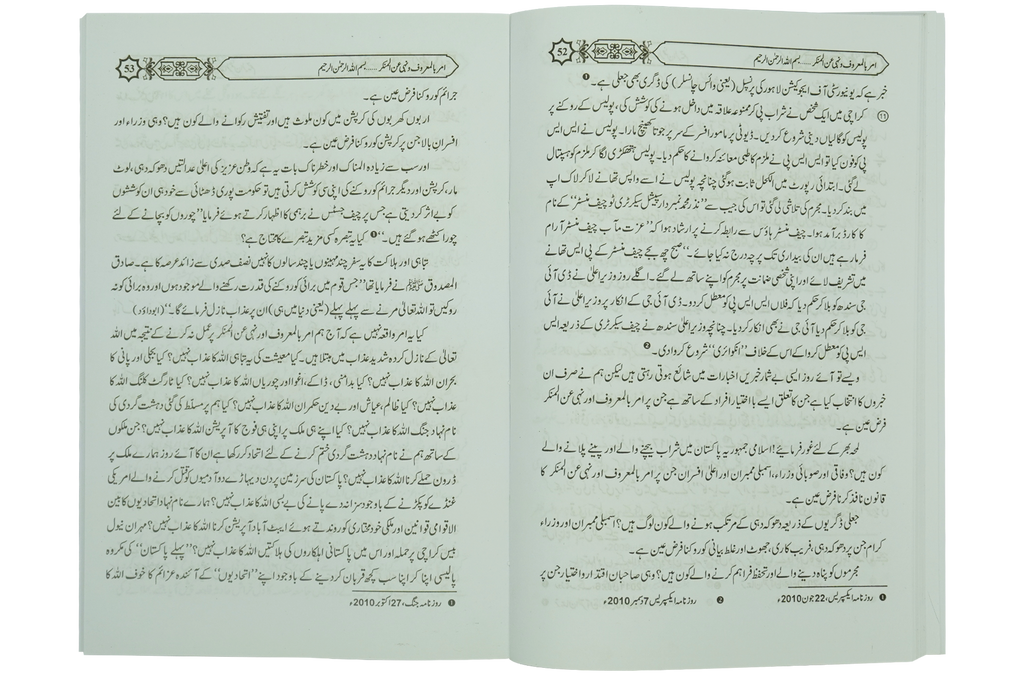 امر بالمعروف و نہی عن المنکر ..... بسم اللہ الرحمٰن الرحیم
52
خبر ہے کہ یونیورسٹی آف ایجوکیشن لاہور کی پرنسپل (یعنی وائس چانسلر) کی ڈگری بھی جعلی ہے۔ ❶
⑪ کراچی میں ایک شخص نے شراب پی کر ممنوعہ علاقہ میں داخل ہونے کی کوشش کی، پولیس کے روکنے پر
پولیس کو گالیاں دینی شروع کر دیں۔ ڈیوٹی پر مامور افسر کے سر پر جوتا کھینچ مارا۔ پولیس نے ایس ایس
پی کو فون کیا تو ایس ایس پی نے ملزم کا طبی معائنہ کروانے کا حکم دیا۔ پولیس ہتھکڑی لگا کر ملزم کو ہسپتال
لے گئی۔ ابتدائی رپورٹ میں الکحل ثابت ہوگئی چنانچہ پولیس نے اسے واپس تھانے لا کر لاک اپ
میں بند کر دیا۔ مجرم کی تلاشی لی گئی تو اس کی جیب سے ”نذر محمد نمبردار سپیشل سیکرٹری ٹو چیف منسٹر“ کے نام
کا کارڈ برآمد ہوا۔ چیف منسٹر ہاؤس سے رابطہ کرنے پر ارشاد ہوا کہ ”عزت مآب چیف منسٹر آرام
فرما رہے ہیں ان کی بیداری تک پرچہ درج نہ کیا جائے۔“ صبح چھ بجے چیف منسٹر کے پی ایس تھانے
میں تشریف لائے اور اپنی شخصی ضمانت پر مجرم کو اپنے ساتھ لے گئے۔ اگلے روز وزیر اعلیٰ نے ڈی آئی
جی سندھ کو بلا کر حکم دیا کہ فلاں ایس ایس پی کو معطل کر دو۔ ڈی آئی جی کے انکار پر وزیر اعلیٰ نے آئی
جی کو بلا کر حکم دیا آئی جی نے بھی انکار کر دیا۔ چنانچہ وزیر اعلیٰ سندھ نے چیف سیکرٹری کے ذریعہ ایس
ایس پی کو معطل کروا کے اس کے خلاف ”انکوائری“ شروع کروا دی۔ ❷
ویسے تو آئے روز ایسی بے شمار خبریں اخبارات میں شائع ہوتی رہتی ہیں لیکن ہم نے صرف ان
خبروں کا انتخاب کیا ہے جن کا تعلق ایسے با اختیار افراد کے ساتھ ہے جن پر امر بالمعروف اور نہی عن المنکر
فرض عین ہے۔
لمحہ بھر کے لئے غور فرمائیے! اسلامی جمہوریہ پاکستان میں شراب بیچنے والے اور پینے پلانے والے
کون ہیں؟ وفاقی اور صوبائی وزراء، اسمبلی ممبران اور اعلیٰ افسران جن پر امر بالمعروف اور نہی عن المنکر کا
قانون نافذ کرنا فرض عین ہے۔
جعلی ڈگریوں کے ذریعہ دھوکہ دہی کے مرتکب ہونے والے کون لوگ ہیں؟ اسمبلی ممبران اور وزراء
کرام جن پر دھوکہ دہی، فریب کاری، جھوٹ اور غلط بیانی کو روکنا فرض عین ہے۔
مجرموں کو پناہ دینے والے اور تحفظ فراہم کرنے والے کون ہیں؟ وہی صاحبان اقتدار و اختیار جن پر
❶ روزنامہ ایکسپریس، 22 جون 2010ء ❷ روزنامہ ایکسپریس 7 دسمبر 2010ء
امر بالمعروف و نہی عن المنکر ..... بسم اللہ الرحمٰن الرحیم
53
جرائم کو روکنا فرض عین ہے۔
اربوں کھربوں کی کرپشن میں کون ملوث ہیں اور تفتیش رکوانے والے کون ہیں؟ وہی وزراء اور
افسران بالا جن پر کرپشن کو روکنا فرض عین ہے۔
اور سب سے زیادہ المناک اور خطرناک بات یہ ہے کہ وطن عزیز کی اعلیٰ عدالتیں دھوکہ دہی، لوٹ
مار، کرپشن اور دیگر جرائم کو روکنے کی اپنی سی کوشش کرتی ہیں تو حکومت پوری ڈھٹائی سے خود ہی ان کوششوں
کو بے اثر کر دیتی ہے جس پر چیف جسٹس نے برہمی کا اظہار کرتے ہوئے فرمایا ”چوروں کو بچانے کے لئے
چور اکٹھے ہوگئے ہیں۔“ ❶ کیا یہ تبصرہ کسی مزید تبصرے کا محتاج ہے؟
تباہی اور ہلاکت کا یہ سفر چند مہینوں یا چند سالوں کا نہیں نصف صدی سے زائد عرصہ کا ہے۔ صادق
المصدوق ﷺ نے فرمایا تھا ”جس قوم میں برائی کو روکنے کی قدرت رکھنے والے موجود ہوں اور وہ برائی کو نہ
روکیں تو اللہ تعالیٰ مرنے سے پہلے پہلے (یعنی دنیا میں ہی) ان پر عذاب نازل فرمائے گا۔“ (ابوداؤد)
کیا یہ امر واقعہ نہیں ہے کہ آج ہم امر بالمعروف اور نہی عن المنکر پر عمل نہ کرنے کے نتیجہ میں اللہ
تعالیٰ کے نازل کردہ شدید عذاب میں مبتلا ہیں۔ کیا معیشت کی یہ تباہی اللہ کا عذاب نہیں؟ کیا بجلی اور پانی کا
بحران اللہ کا عذاب نہیں؟ کیا بدامنی، ڈاکے، اغوا اور چوریاں اللہ کا عذاب نہیں؟ کیا ٹارگٹ کلنگ اللہ کا
عذاب نہیں؟ کیا ظالم، عیاش اور بے دین حکمران اللہ کا عذاب نہیں؟ کیا ہم پر مسلط کی گئی دہشت گردی کی
نام نہاد جنگ اللہ کا عذاب نہیں؟ کیا اپنے ہی ملک پر اپنی ہی فوج کا آپریشن اللہ کا عذاب نہیں؟ جن ملکوں
کے ساتھ ہم نے نام نہاد دہشت گردی ختم کرنے کے لئے اتحاد کر رکھا ہے ان کا آئے روز ہمارے ملک پر
ڈرون حملے کرنا اللہ کا عذاب نہیں؟ پاکستان کی سرزمین پر دن دیہاڑے دو آدمیوں کو قتل کرنے والے امریکی
غنڈے کو پکڑنے کے باوجود سزا نہ دے پانے کی بے بسی اللہ کا عذاب نہیں؟ ہمارے نام نہاد اتحادیوں کا بین
الاقوامی قوانین اور ملکی خود مختاری کو روندتے ہوئے ایبٹ آباد آپریشن کرنا اللہ کا عذاب نہیں؟ مہران نیول
بیس کراچی پر حملہ اور اس میں پاکستانی اہلکاروں کی ہلاکتیں اللہ کا عذاب نہیں؟ ”پہلے پاکستان“ کی مکروہ
پالیسی اپنا کر اپنا سب کچھ قربان کر دینے کے باوجود اپنے ”اتحادیوں“ کے آئندہ عزائم کا خوف اللہ کا
❶ روزنامہ جنگ، 27 اکتوبر 2010ء